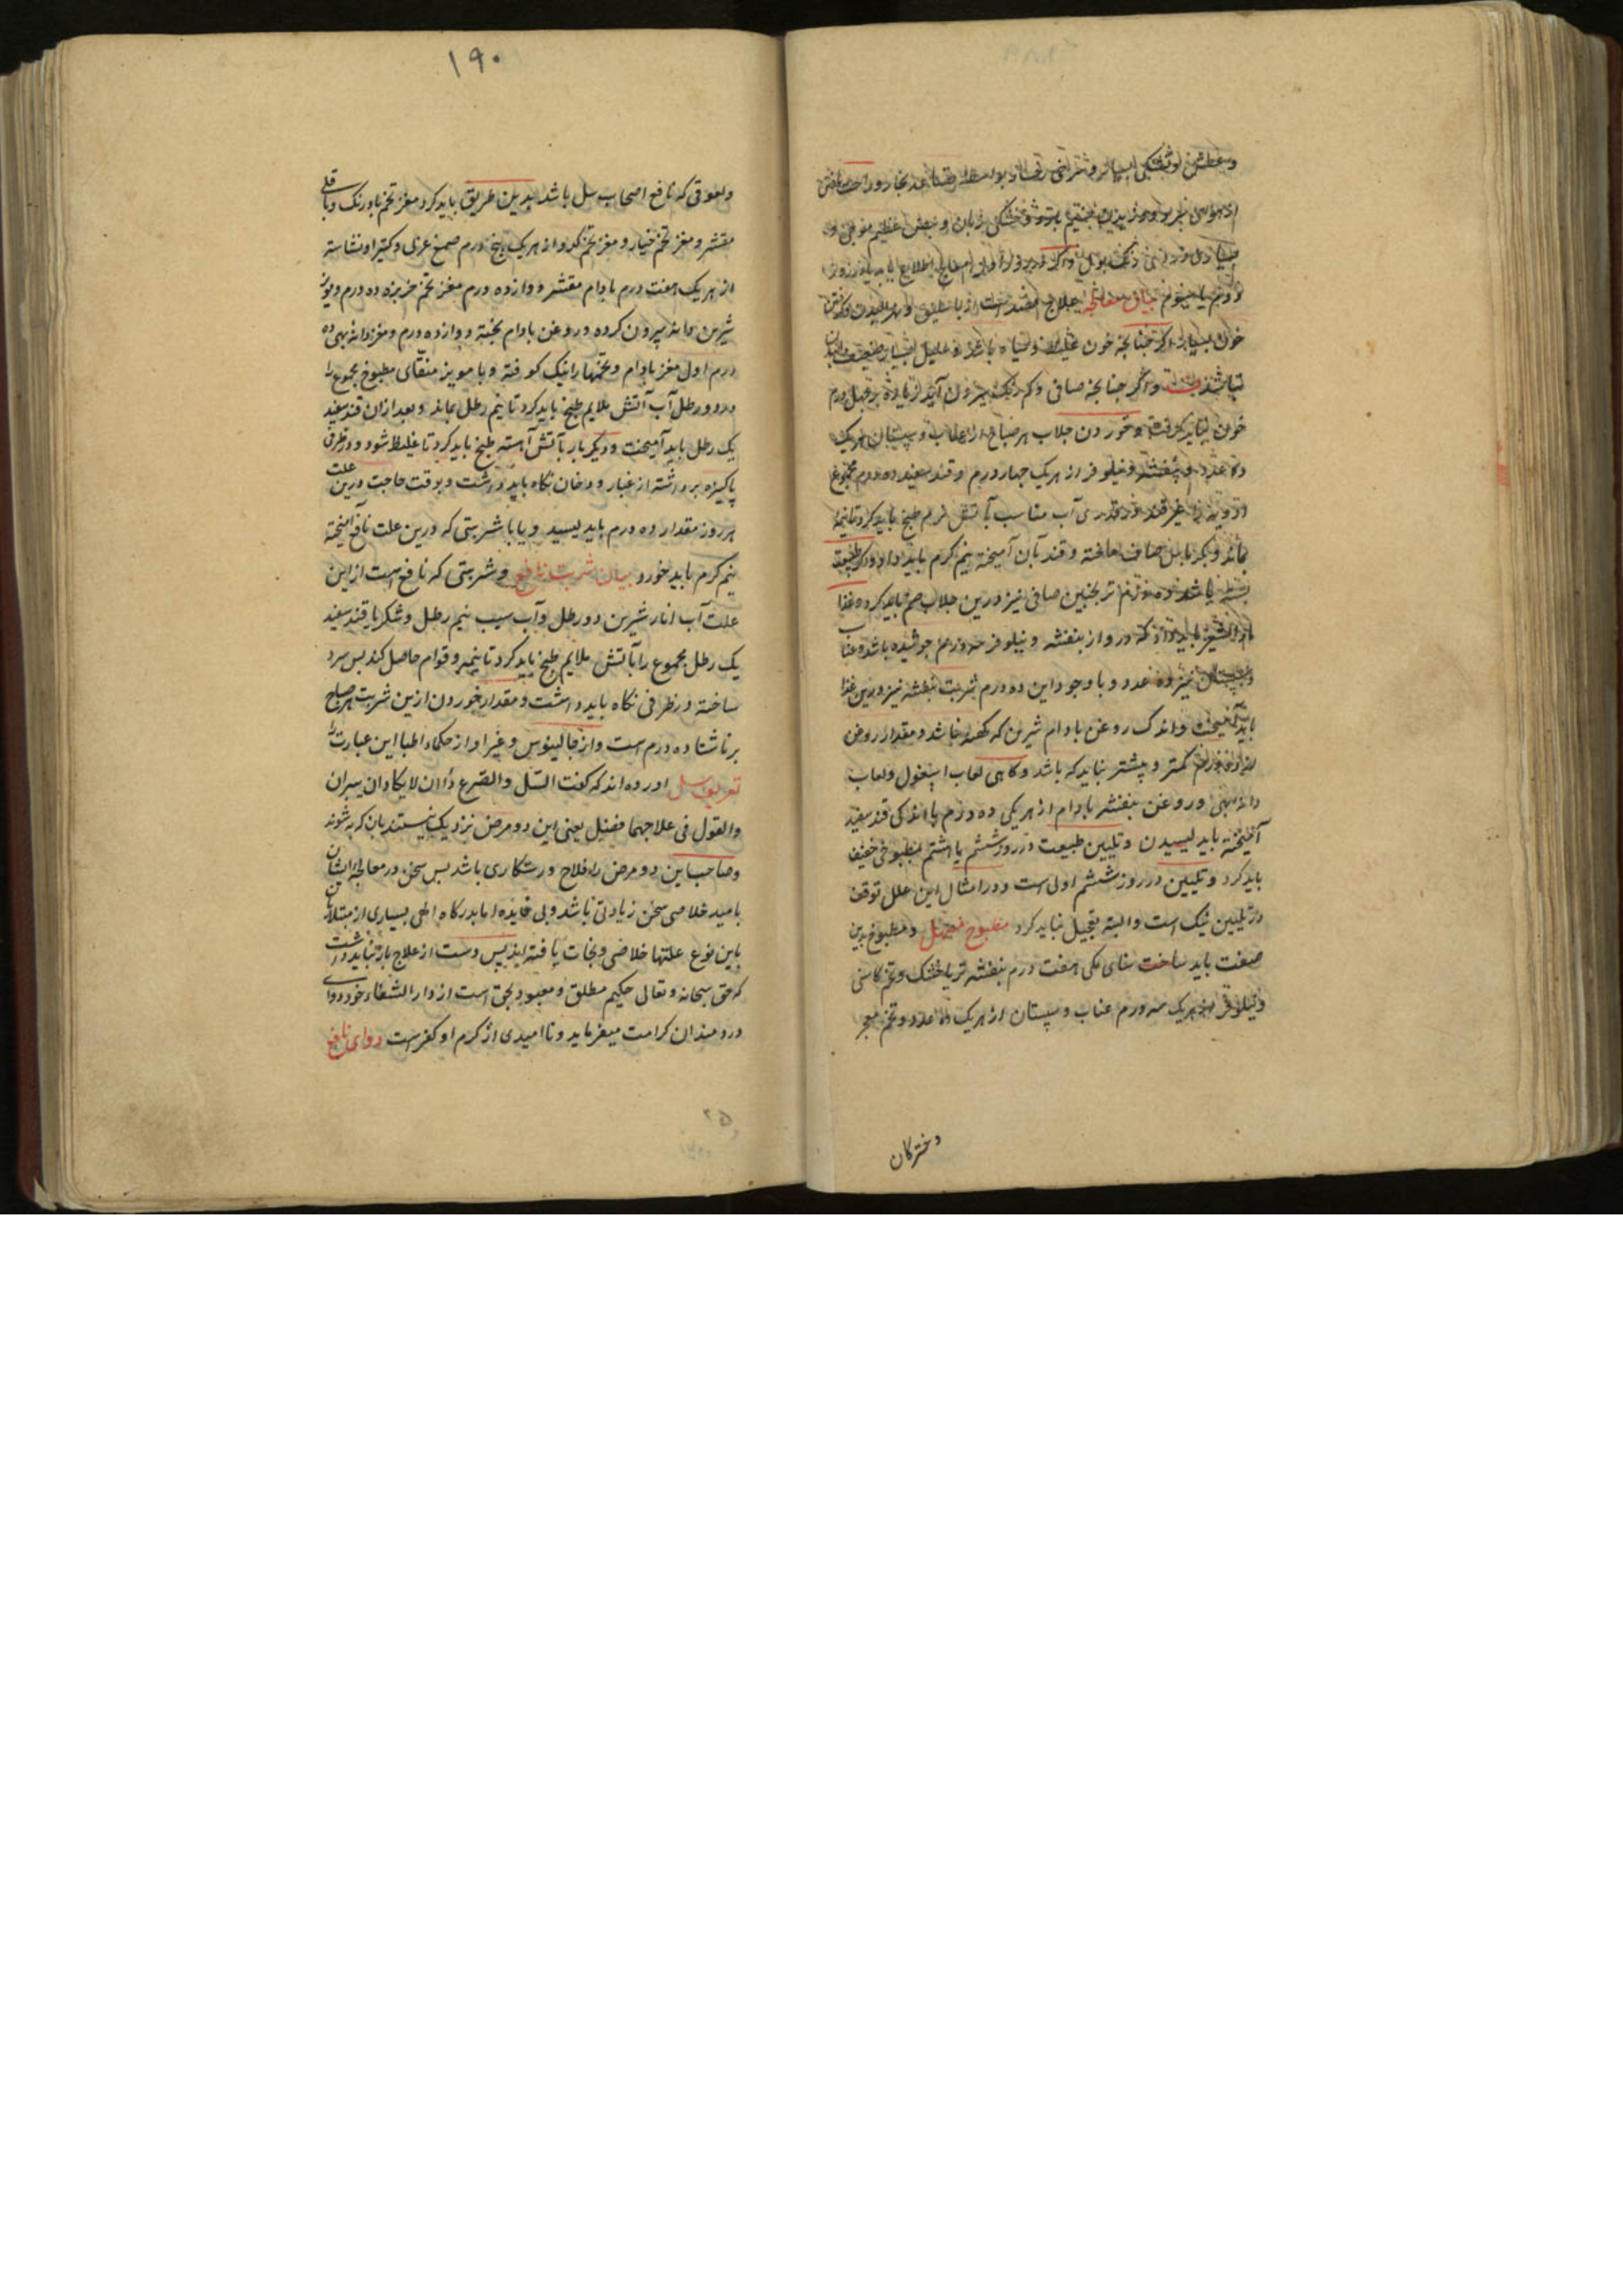 و عطش و تشنگی بسیار
از هوای سرد و خشکی زبان و نبض عظیم موجی و
بیان معالجه علاج فصد است از باسلیق و مالیدن و گرفتن
خون بسیار اگر چنانچه خون غلیظ و سیاه باشد و علیل بسیار ضعیف
نباشد و اگر چنانچه صافی و کم رنگ بیرون آید زیاده بر چهل درم
خون نباید گرفت و خوردن جلاب هر صباح از عناب و سپستان هریک
ده عدد و بنفشه و نیلوفر از هریک چهار درم و قند سفید ده درم مجموع
ادویه را غیر قند در قدری آب مناسب بآتش نرم طبخ باید کرد تا نیمه
بماند و صاف ساخته و قند بآن آمیخته نیم کرم باید داد و اگر طبیعت
بسته باشد ترنجبین صافی نیز درین جلاب ضم باید کرد و غذا
ماء الشعیر باید داد که درو از بنفشه و نیلوفر سه درم جوشیده باشد و عناب
و سپستان نیز ده عدد و با وجود این ده درم شربت بنفشه نیز درین غذا
باید آمیخت و اندک روغن بادام شیرین که کهنه نباشد و مقدار روغن
کمتر و بیشتر نباید که باشد و کاهی لعاب اسبغول و لعاب
دانه بهی و روغن بنفشه بادام از هریکی ده درم با اندکی قند سفید
آمیخته باید لیسیدن و تلیین طبیعت در روز ششم یا هشتم بمطبوخی خفیف
باید کرد و تلیین در روز ششم اولی است و در امثال این علل توقف
در تلیین نیک است و البته تعجیل نباید کرد مطبوخ مسهل و مطبوخ بدین
صفت باید ساخت سنای مکی هفت درم بنفشه تر یا خشک و تخم کاسنی
و نیلوفر از هریک سه درم عناب و سپستان از هریک ده عدد و تخم
دخترکان
۱۹۰
و لعوقی که نافع اصحاب سل باشد بدین طریق باید کرد مغز تخم بادرنک و باقلی
مقشر و مغز تخم خیار و مغز تخم کدو از هریک پنج درم صمغ عربی و کتیرا و نشاسته
از هریک هفت درم بادام مقشر دوازده درم مغز تخم خربزه ده درم و مویز
شیرین دانه بیرون کرده و روغن بادام پخته دوازده درم و مغز دانه بهی ده
درم اول مغز بادام و تخمها را نیک کوفته و با مویز منقای مطبوخ مجموع را
در دو رطل آب آتش ملایم طبخ باید کرد تا نیم رطل بماند و بعد از آن قند سفید
یک رطل باید آمیخت و دیگر بار بآتش آهسته طبخ باید کرد تا غلیظ شود و در ظرفی
پاکیزه برداشته از غبار و دخان نکاه باید داشت و بوقت حاجت درین علت
هر روز مقدار ده درم باید لیسید و یا با شربتی که درین علت نافع آمیخته
نیم کرم باید خورد بیان شربت نافع و شربتی که نافع است از این
علت آب انار شیرین دو رطل و آب سیب نیم رطل و شکر یا قند سفید
یک رطل مجموع را بآتش ملایم طبخ باید کرد تا نیمه و قوام حاصل کند بس سرد
ساخته در ظرفی نکاه باید داشت و مقدار خوردن ازین شربت هر صباح
بر ناشتا ده درم است و از جالینوس و غیر او از حکماء اطبا این عبارت را
تعریف سل آورده اند که گفت السل والقرع داان لایکادان یبران
والقول فی علاجهما فضل یعنی این دو مرض نزدیک نیستند بان که به شوند
و صاحب این دو مرض را فلاح و رستکاری باشد بس سخن در معالجه ایشان
بامید خلاصی سخن زیادتی باشد ولی اما بدرکاه الهی بسیاری از مبتلایان
باین نوع علتها خلاصی و نجات یافته اند پس دست از علاج باز نباید داشت
که حق سبحانه و تعالی حکیم مطلق و معبود بحق است از دار الشفاء خود دوای
دردمندان کرامت میفرماید و ناامیدی از کرم او کفر است دوای نافع
۲۵